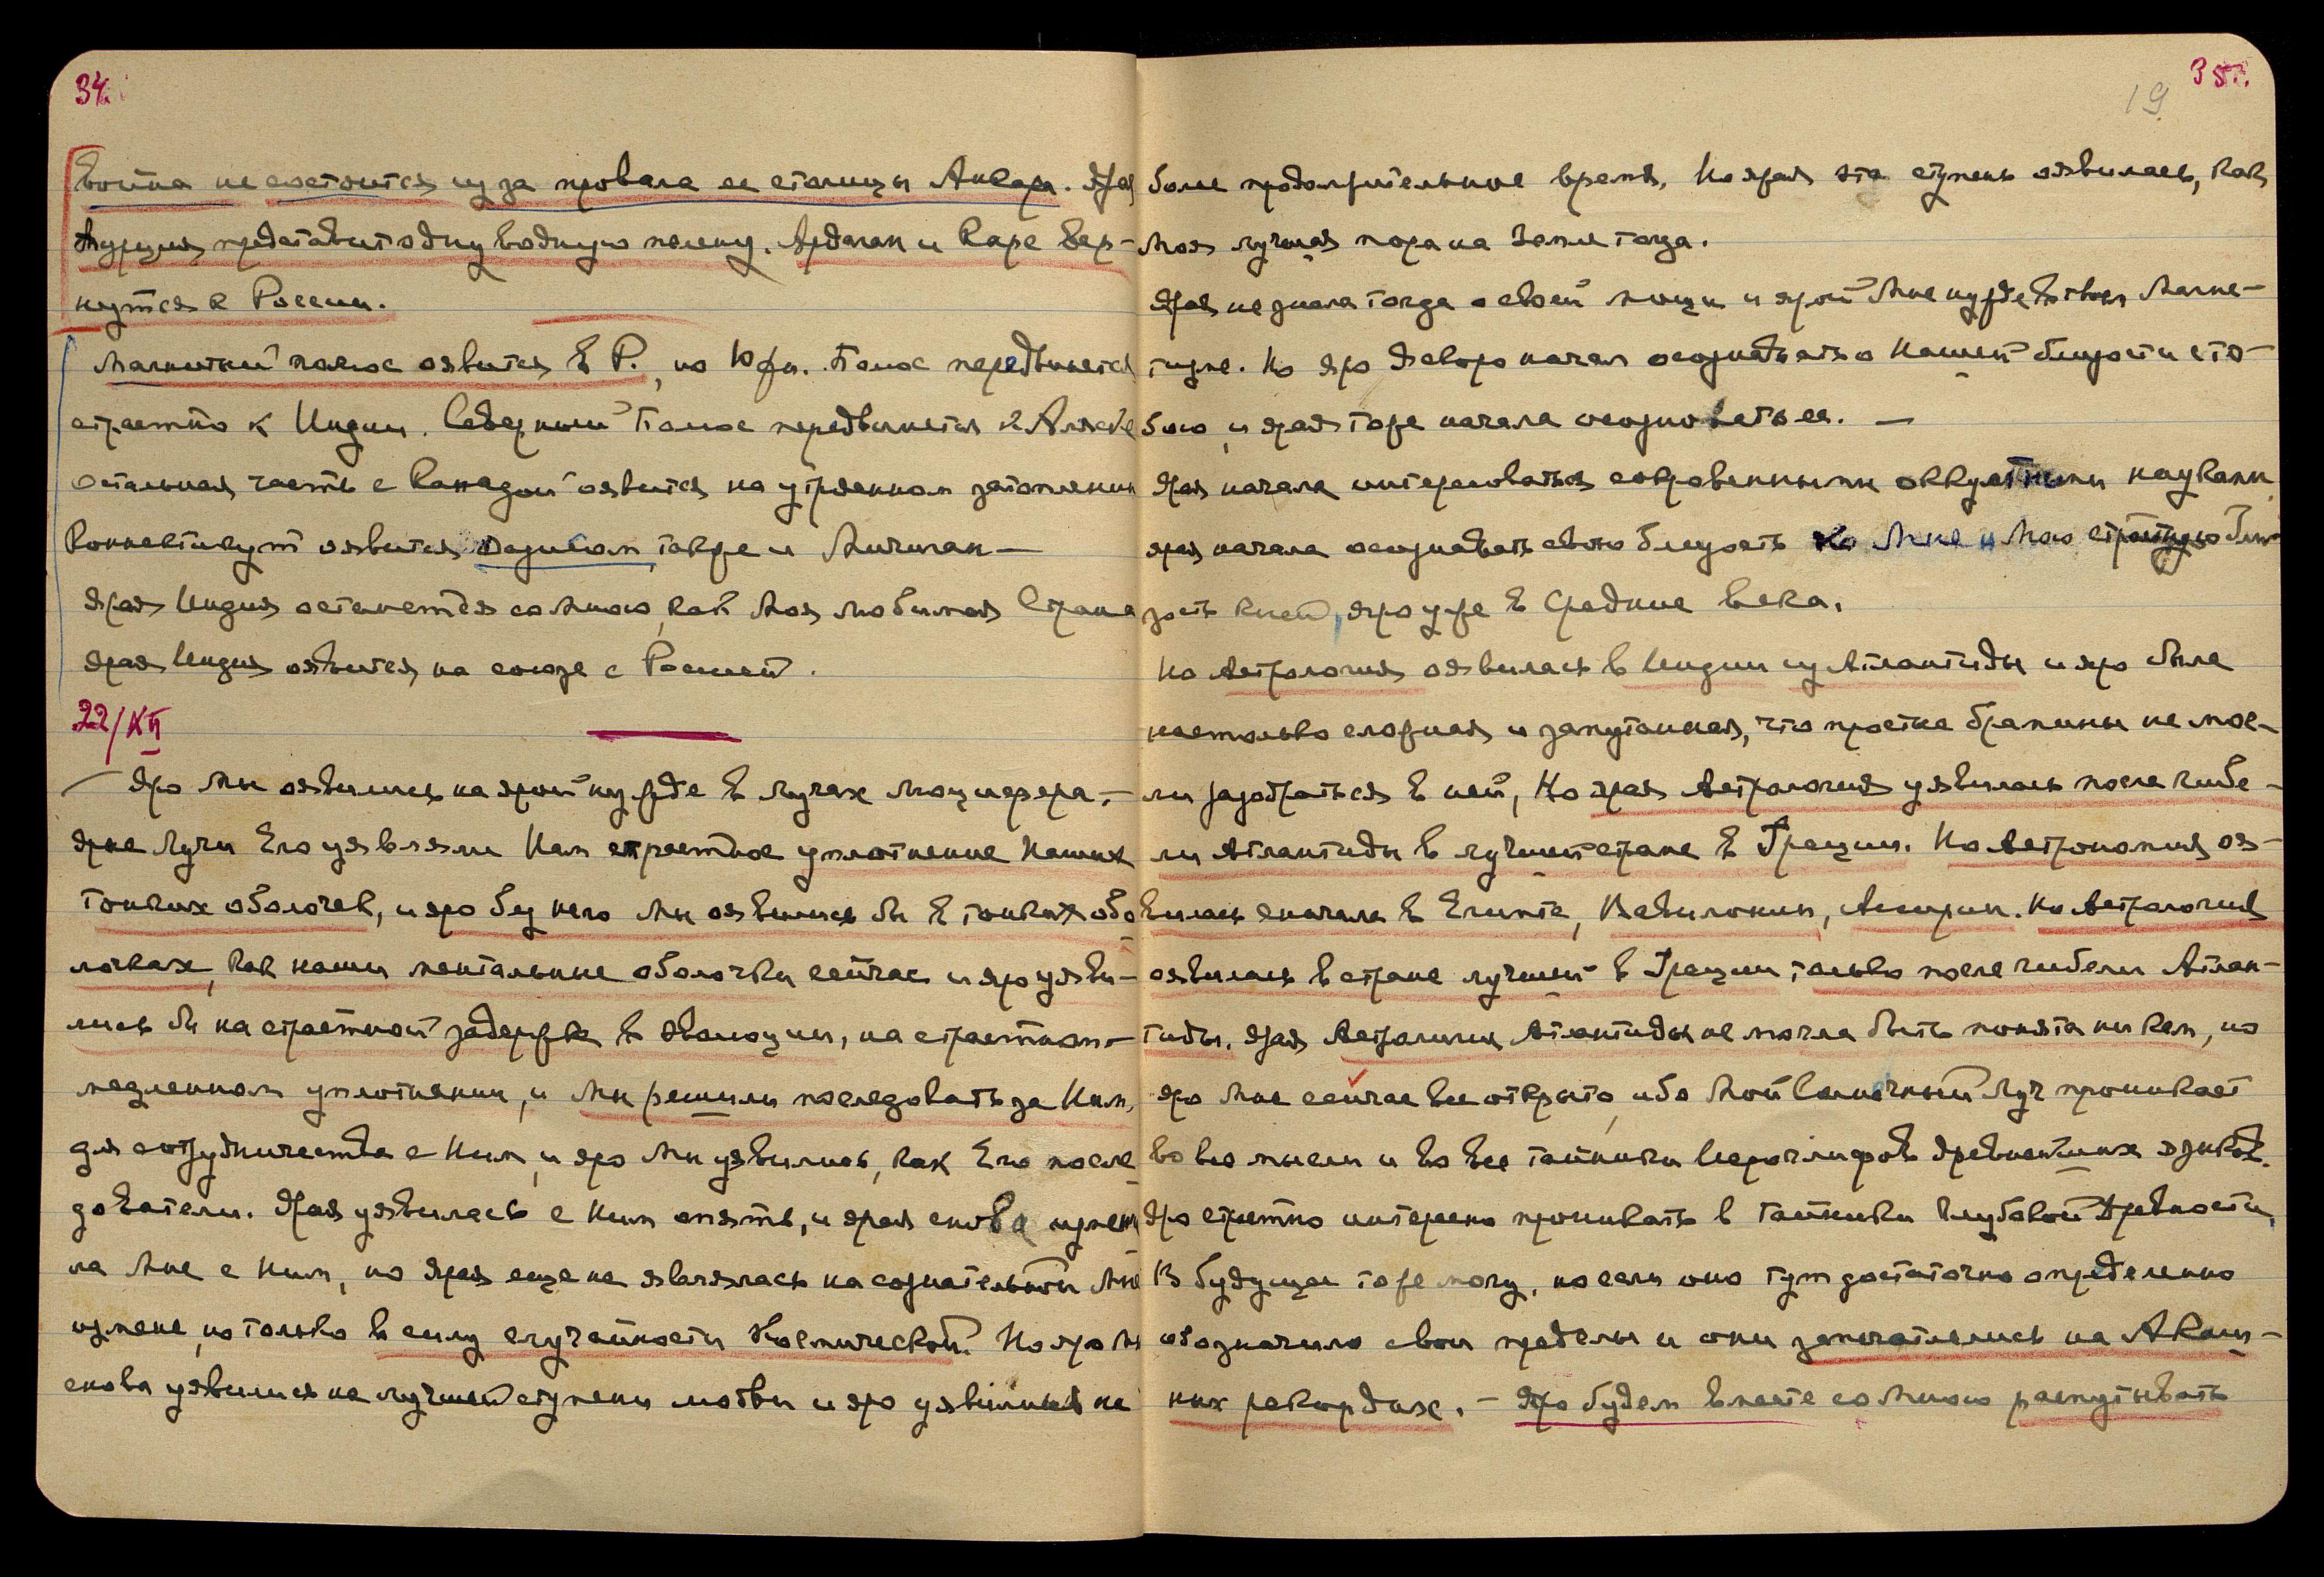 34.
Война не состоится из за провала ее столицы Анкара. Ярая
Турция представит одну водную пелену. Ардаган и Карс вер-
нутся к России.
Магнитный полюс оявится в Р., но Южн. Полюс передвинется
страстно к Индии. Северный Полюс передвинется к Аляске
Остальная часть с Канадой оявится на утроенном затоплении
Коннектикут оявится также и Мичиган —
Ярая Индия останется со Мною, как Моя любимая Страна
Ярая Индия оявится на союзе с Россией.
22/XII
— Яро Мы оявились на ярой нужде в Лучах Люцифера. —
Ярые Лучи Его уявляли Нам страстное уплотнение Наших
тонких оболочек, и яро без него Мы оявились бы в тонких обо-
лочках, как наши ментальные оболочки сейчас и яро уяви-
лись бы на страстной задержке в эволюции, на страстном —
медленном уплотнении, и Мы решили последовать за Ним,
для сотрудничества с Ним, и яро Мы уявились, как Его после-
дователи. Ярая уявилась с Ним опять, и ярая снова измени-
ла Мне с Ним, но Ярая еще не являлась на сознательной Мне
измене, но только в силу случайности Космической. Но яро Мы
снова уявились на лучшей ступени любви и яро уявились на
35.
19
более продолжительное время. Но ярая эта ступень оявилась, как
Моя лучшая пора на Земле тогда.
Ярая не знала тогда о своей мощи и ярой Мне нужде в твоем Магне-
тизме. Но яро Я скоро начал осознавать о Нашей близости с то-
бою, и ярая тоже начала осознавать ее. —
Ярая начала интересоваться сокровенными оккультными науками
ярая начала осознавать свою близость ко Мне и Мою страстную бли-
зость к ней, яро уже в Средние века.
Но Астрология оявилась в Индии из Атлантиды и яро была
настолько сложная и запутанная, что простые брамины не мог-
ли разобраться в ней, Но ярая Астрология уявилась после гибе-
ли Атлантиды в лучшей стране в Греции. Но Астрономия оя-
вилась сначала в Египте, Вавилонии, Ассирии. Но Астрология
оявилась в стране лучшей в Греции только после гибели Атлан-
тиды. Ярая Астрология Атлантиды не могла быть понята никем, но
яро Мне сейчас все открыто, ибо Мой Солнечный Луч проникает
во все мысли и во все тайники Иероглифов древнейших языков.
Яро страстно интересно проникать в тайники глубокой древности,
В будущее тоже могу, но если оно тут достаточно определенно
обозначило свои пределы и они запечатлелись на Акаши-
ных рекордах. — Яро будем вместе со Мною распутывать